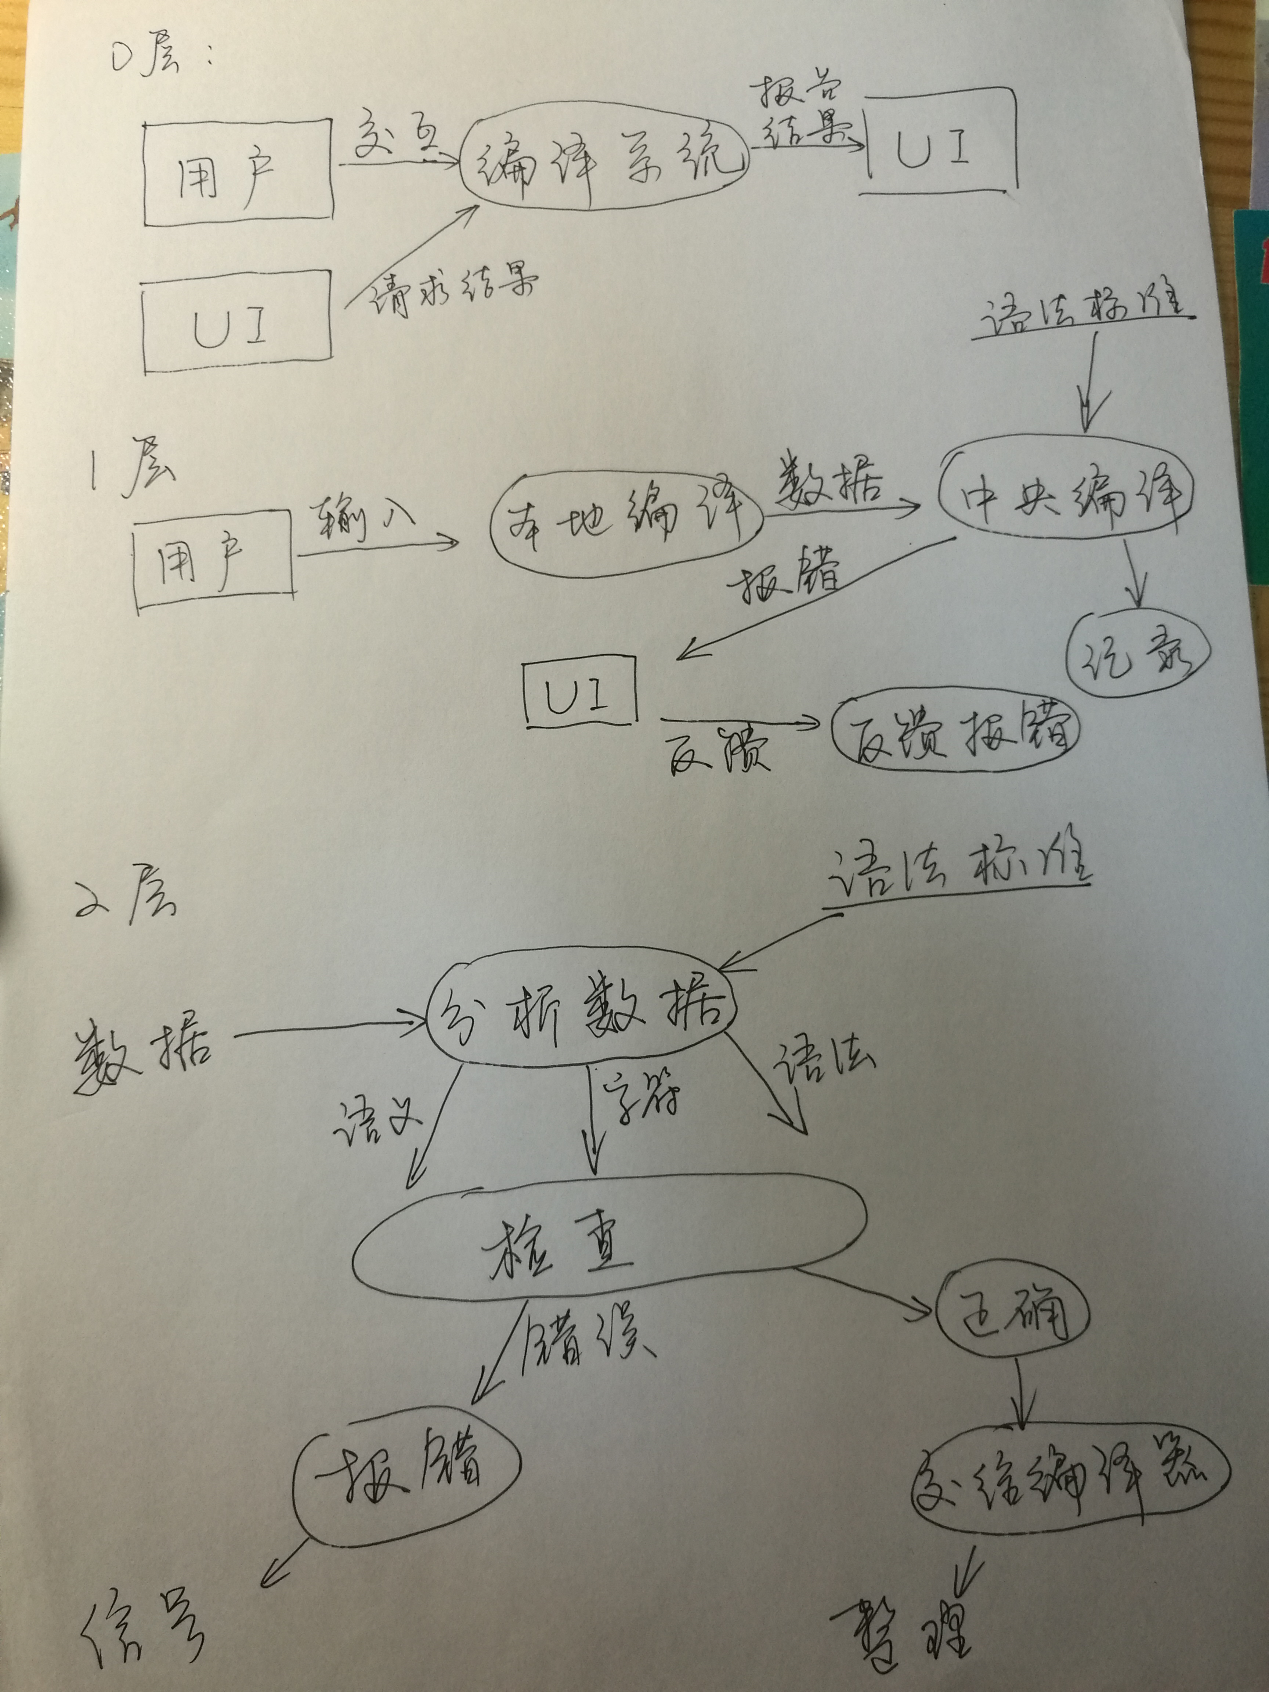 0层：
用户
交互
编译系统
报告
结果
UI
UI
请求结果
语法标准
1层
用户
输入
本地编译
数据
中央编译
报错
记录
UI
反馈
反馈报错
2层
语法标准
数据
分析数据
语义
字符
语法
检查
错误
正确
报错
交给编译器
信号
整理